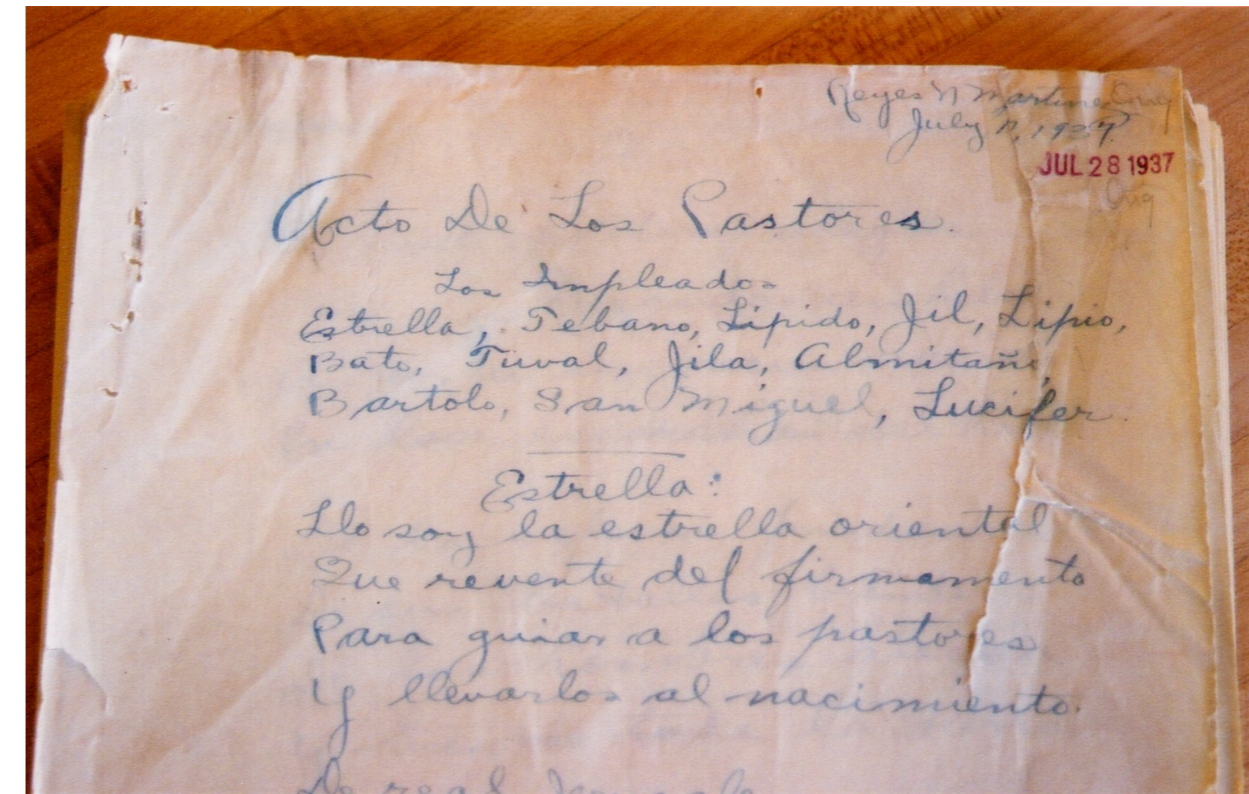 Reyes N Martinez
July 1937
JUL 28 1937
Orig
Acto De Los Pastores.
Los Impleados
Estrella, Tebano, Lipido, Jil, Lipio,
Bato, Tuval, Jila, Almitaño,
Bartolo, San Miguel, Lucifer.
Estrella:
Llo soy la estrella oriental
Que revente del firmamento
Para guiar a los pastores
Y llevarlos al nacimiento.
De real